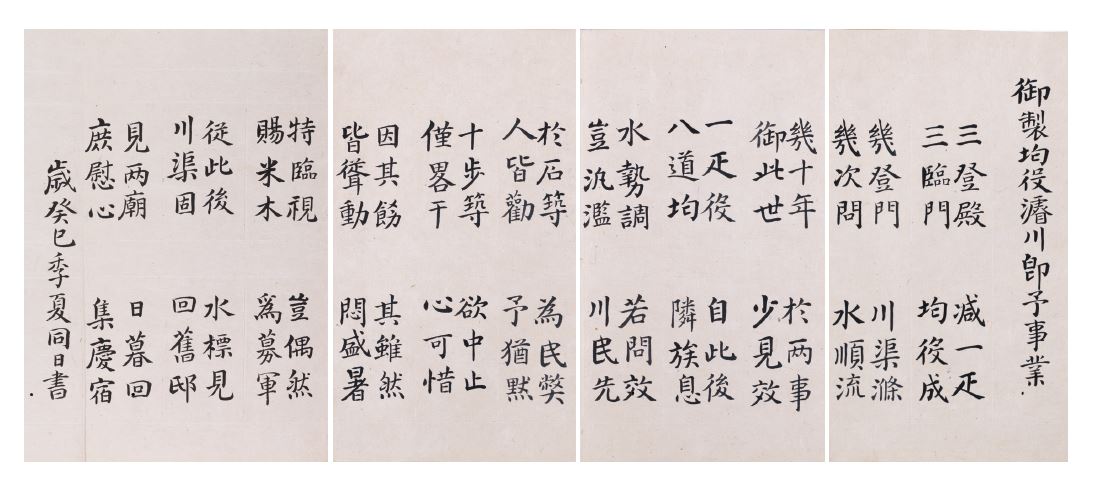 御製均役濬川卽予事業
三登殿 減一疋
三臨門 均役成
幾登門 川渠滌
幾次問 水順流
幾十年 於两事
御此世 少見效
一疋役 自此後
八道均 隣族息
水勢調 若問效
豈汎濫 川民先
於石築 為民獘
人皆勸 予猶默
十步築 欲中止
僅畧干 心可惜
因其飭 其雖然
皆聳動 悶盛暑
特臨視 豈偶然
賜米木 爲募軍
從此後 水標見
川渠固 回舊邸
見两廟 日暮回
庶慰心 集慶宿
歲癸巳季夏同日書